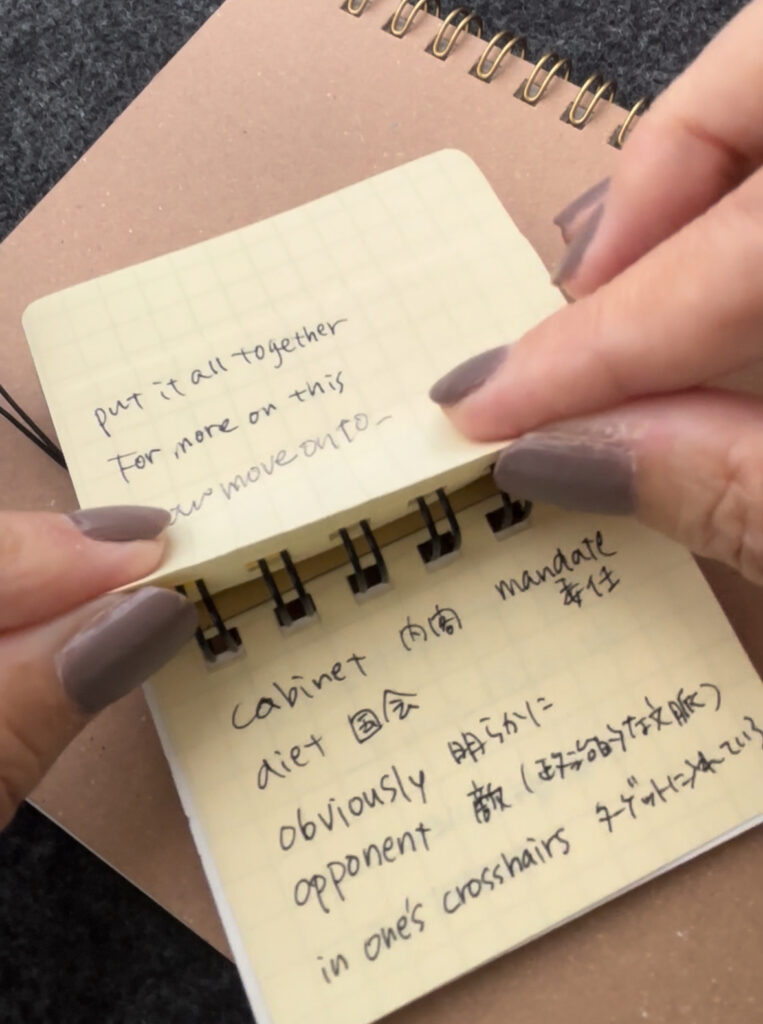 put it all together
For more on this
move on to_
cabinet 内閣 mandate
委任
diet 国会
obviously 明らかに
opponent 敵 (政治的な文脈)
in one's crosshairs ターゲットにされている